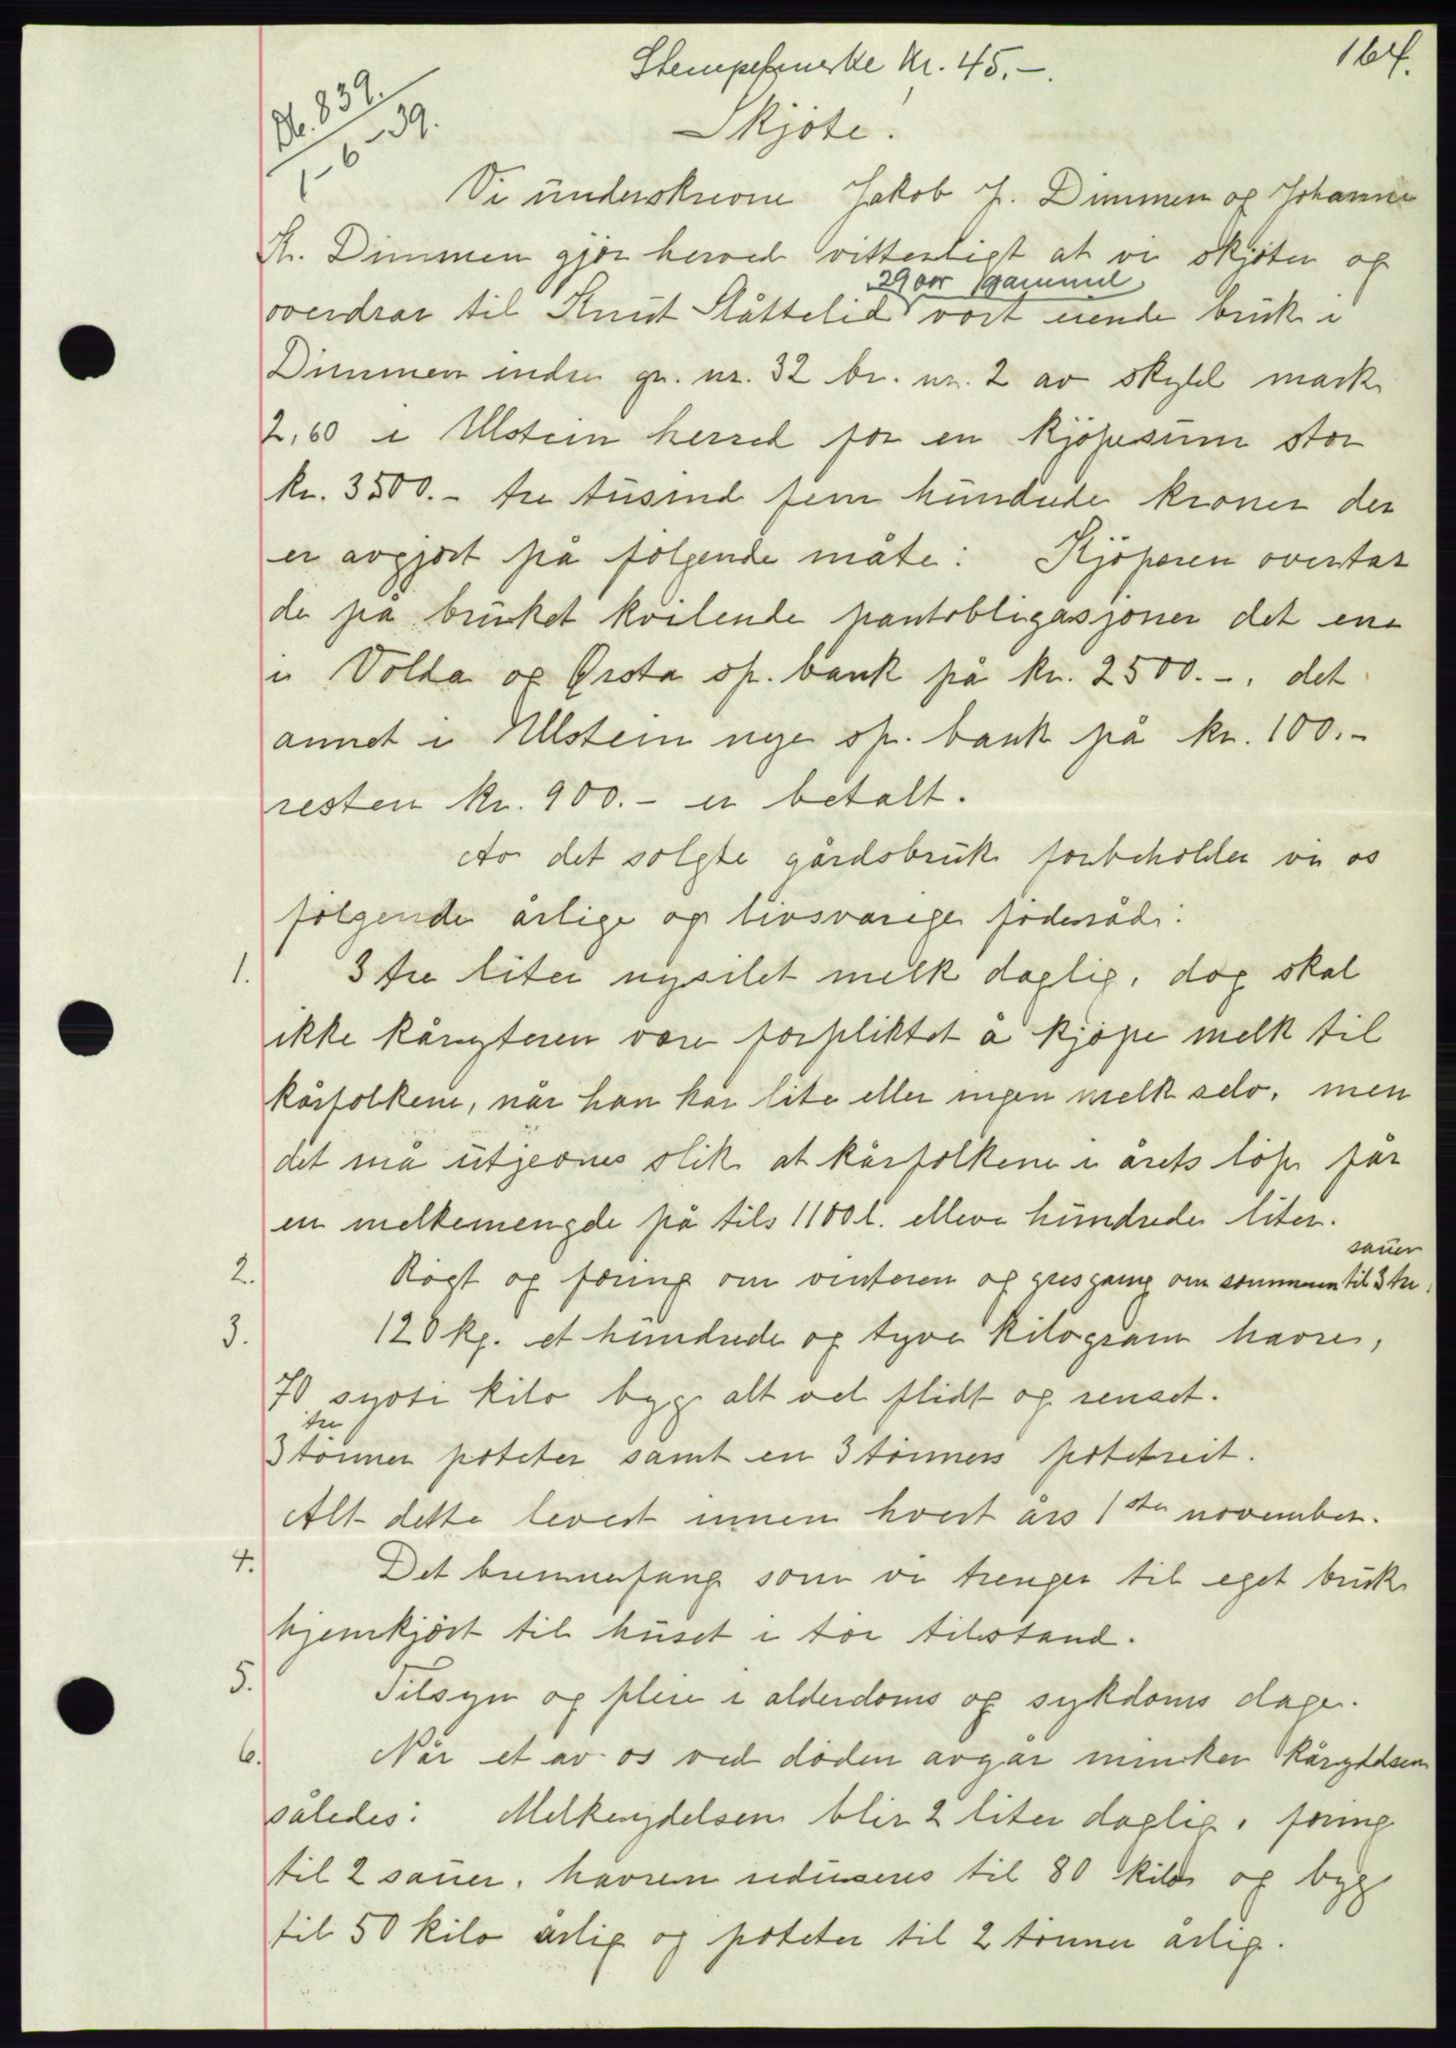 164.
Stempelmerke kr. 45.-.
No. 839.
1-6-39.
Skjøte.
Vi underskrevne Jakob J. Dimmen og Johanne
Kr. Dimmen gjør herved vitterligt at vi skjøter og
29 aar gammel
overdrar til Knut Slåttelid vort eiende bruk i
Dimmen indre gr. nr. 32 br. nr. 2 av skyld mark
2,60 i Ulstein herred for en kjøpesum stor
kr. 3500.- tre tusind fem hundrede kroner der
er avgjort på følgende måte: Kjøperen overtar
de på bruket kvilende pantobligasjoner det ene
i Volda og Ørsta sp. bank på kr. 2500.-, det
annet i Ulstein nye sp. bank på kr. 100.-
resten kr. 900.- er betalt.
Av det solgte gårdsbruk forbeholder vi os
følgende årlige og livsvarige føderåd:
1. 3 tre liter nysilet melk daglig, dog skal
ikke kårsyteren være forpliktet å kjøpe melk til
kårfolkene, når han har lite eller ingen melk selv, men
det må utjevnes slik at kårfolkene i årets løp får
en melkemengde på tils 1100 l. elleve hundrede liter.
sauer
2. Røgt og foring om vinteren og gresgang om sommeren til 3 tre
3. 120 kg. et hundrede og tyve kilogram havre,
70 sytti kilo byg alt vel flidt og renset.
tre
3 tønner poteter samt en 3 tønners potetreit.
Alt dette levert innen hvert års 1ste november.
4. Det brennefang som vi trenger til eget bruk
hjemkjørt til huset i tør tilstand.
5. Tilsyn og pleie i alderdoms og sykdoms dage.
6. Når et av os ved døden avgår minker kårytelsen
således: Melkeydelsen blir 2 liter daglig, foring
til 2 sauer, havren reduseres til 80 kilo og byg
til 50 kilo årlig og poteter til 2 tønner årlig.